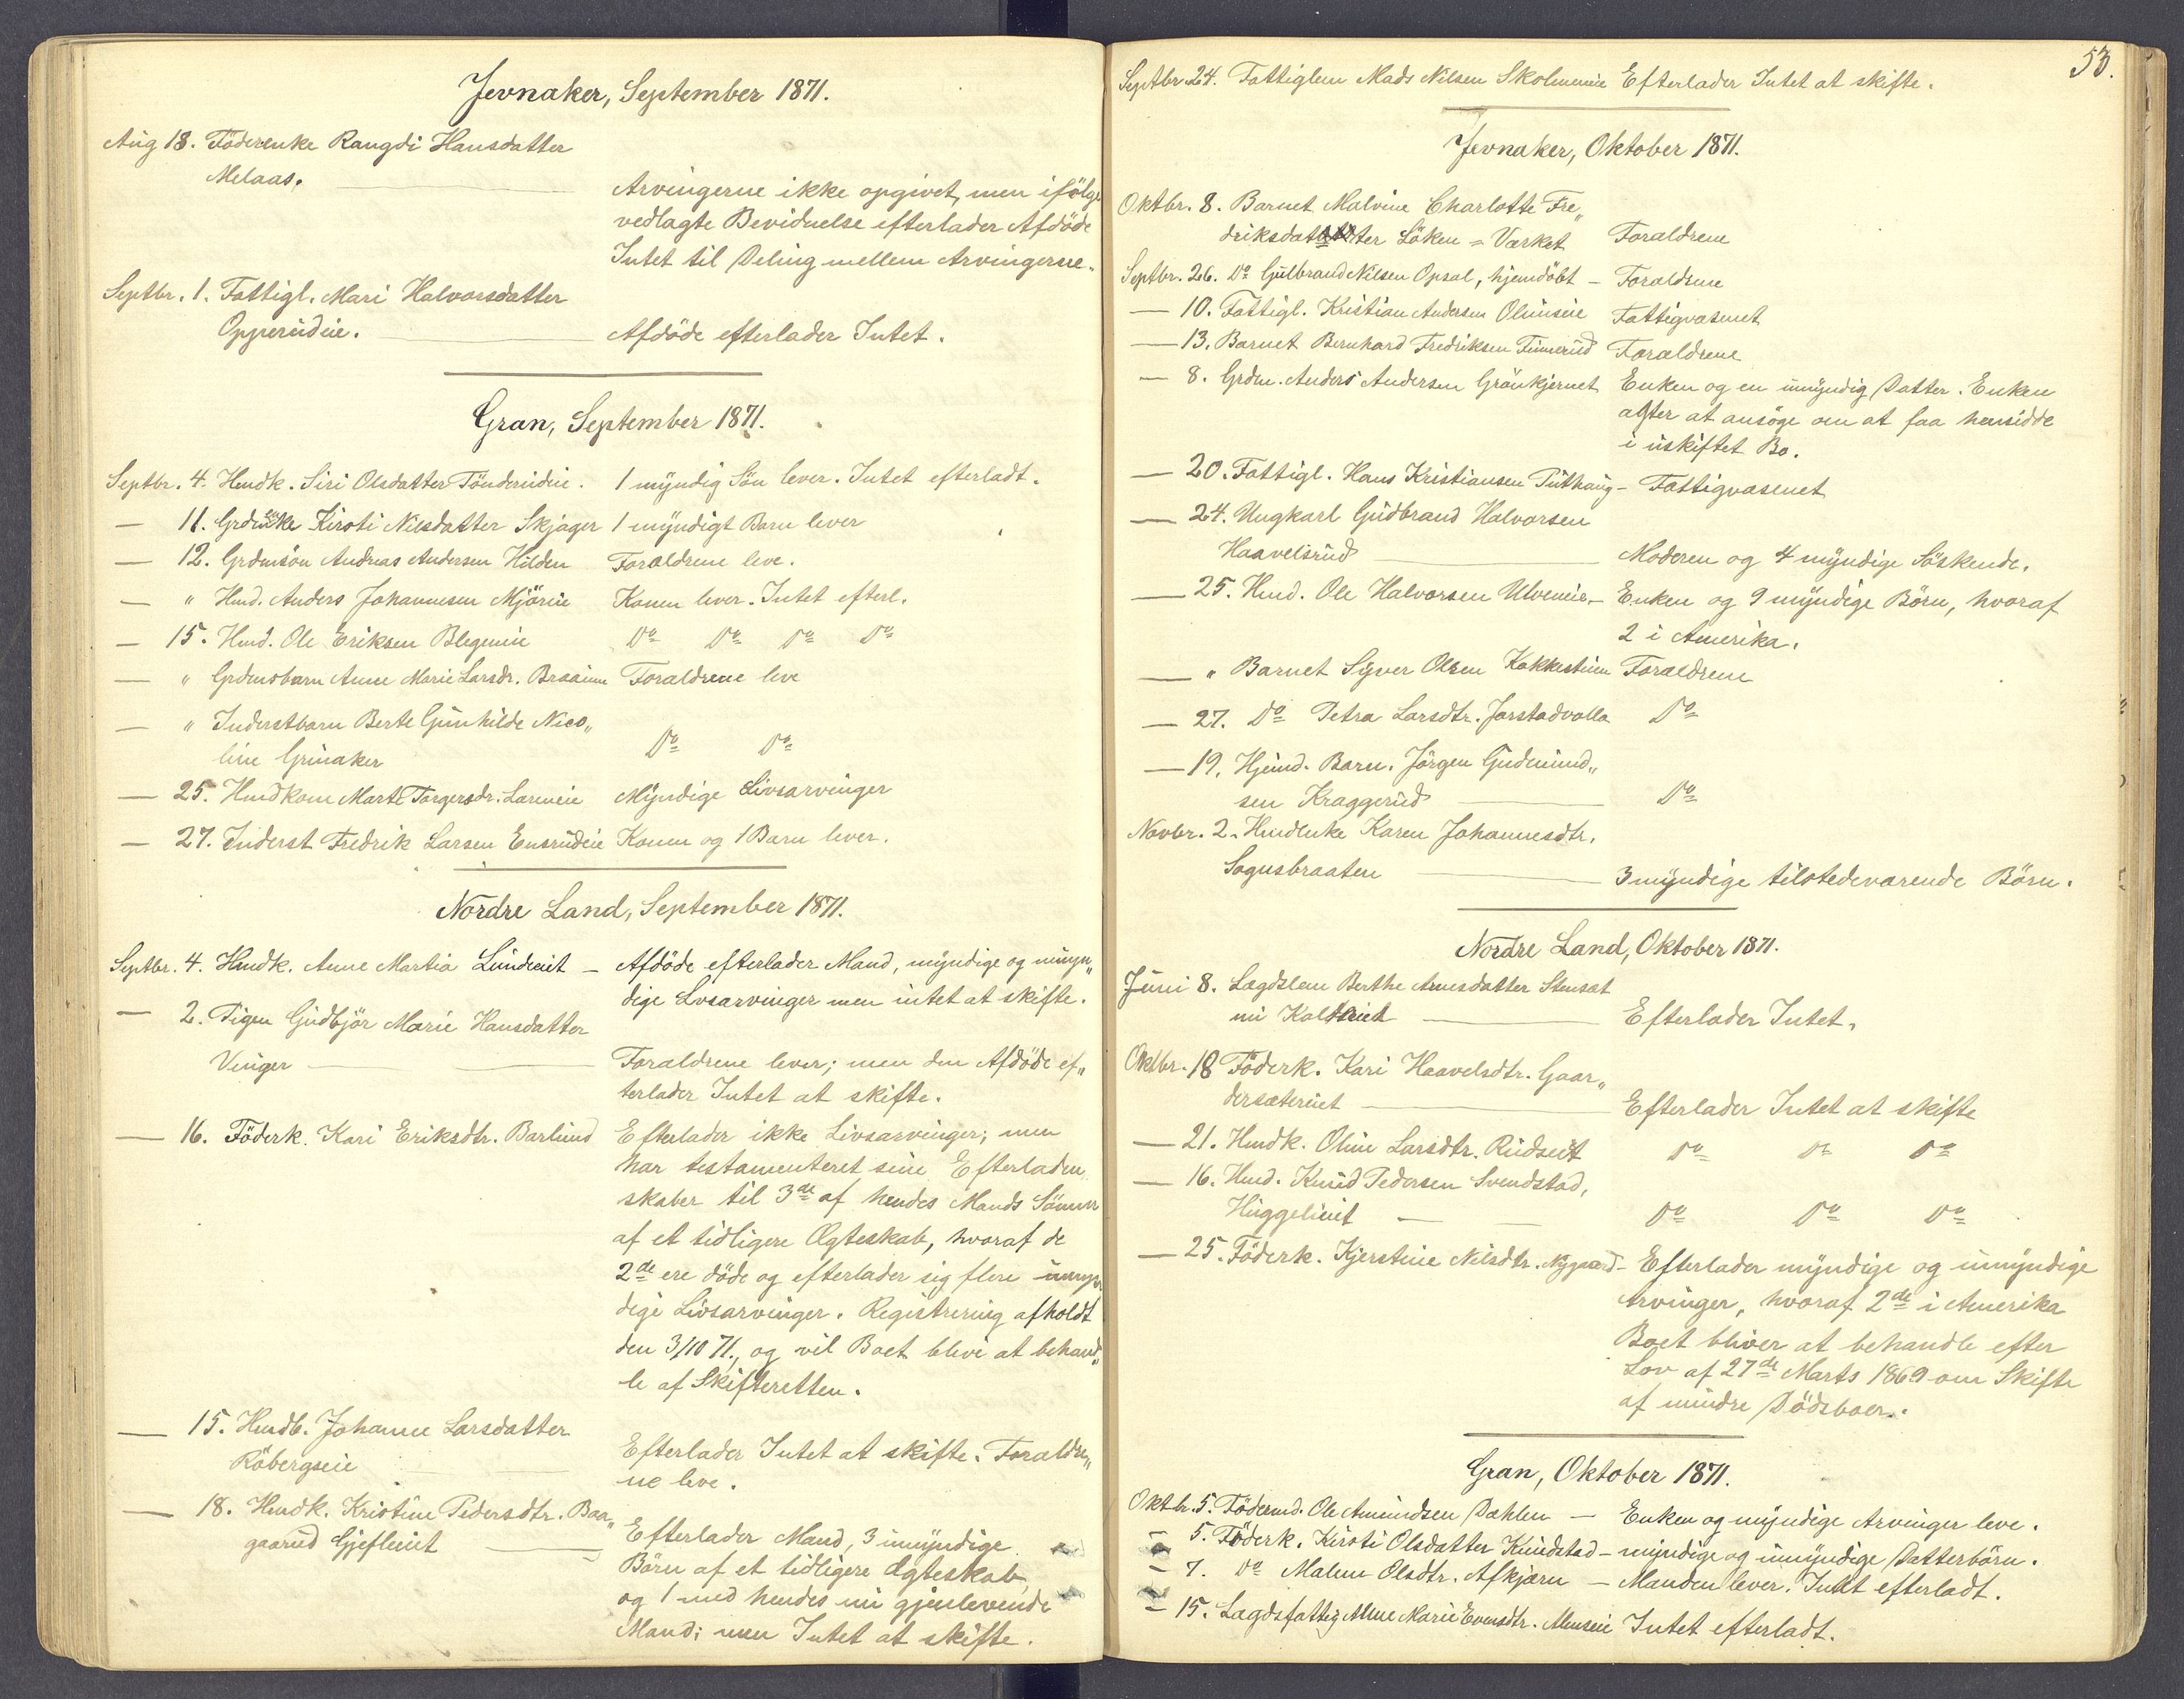 Jevnaker, September 1871.
Aug 18. Föderenke Rangdi Hansdatter
Melaas.
Arvingerne ikke opgivet, men ifölge
vedlagte Bevidnelse efterlader Afdöde
Intet til Deling mellem Arvingerne.
Septbr. 1. Fattigl. Mari Halvorsdatter
Opperudeie. Afdöde efterlader Intet.
Gran, September 1871.
Septbr. 4. Hmdk. Siri Olsdatter Tönderudeie. 1 myndig Sön lever. Intet efterladt.
— 11. Grdmenke Kirsti Nilsdatter Skjager 1 myndigt Barn lever
— 12. Grdmsön Andreas Andersen Hilden Forældrene leve.
— " Hmd. Anders Johannesen Mjöreie Konen lever. Intet efterl.
— 15. Hmd. Ole Eriksen Blegeneie Do Do Do Do
— " Grdmsbarn Anne Marie Larsdr. Braaune Forældrene leve
— " Inderstbarn Berte Gunhilde Nico„
line Grinaker Do Do
— 25. Hmdkone Marte Torgersdr. Larmeie Myndige Livsarvinger
— 27. Inderst Fredrik Larsen Ensrudeie Konen og 1 Barn lever.
Nordre Land, September 1871.
Septbr. 4. Hmdk. Anne Martia Lundeeiet — Afdöde efterlader Mand, myndige og umyn„
dige Lvsarvinger men intet at skifte.
— 2. Pigen Gudbjör Marie Hansdatter
Vinger Forældrene lever; men den Afdöde ef„
terlader Intet at skifte.
— 16. Föderk. Kari Eriksdtr. Barlund Efterlader ikke Livsarvinger; men
har testamenteret sine Efterladen
skaber til 3de af hendes Mands Sönner
af et tidligere Ægteskab, hvoraf de
2de ere döde og efterlader sig flere umyn
dige Livsarvinger. Registrering afholdt
den 3/10 71., og vil Boet blive at behand„
le af Skifteretten.
— 15. Hmdb. Johanne Larsdatter
Röbergseie Efterlader Intet at skifte. Forældre„
ne leve.
— 18. Hmdk. Kristine Pedersdtr. Baa„
gaarud Gjefleeiet Efterlader Mand, 3 umyndige
Börn af et tidligere Ægteskab,
og 1 med hendes nu gjenlevende
Mand; men Intet at skifte.
53.
Septbr. 24. Fattiglem Mads Nilsen Skolmeneie Efterlader Intet at skifte.
Jevnaker, Oktober 1871.
Oktbr. 8. Barnet Malvine Charlotte Fre„
driksdatter Löken = Værket Forældrene
Septbr. 26. Do Gulbrand Nilsen Opsal, hjemdöbt — Forældrene
— 10. Fattigl. Kristian Andersen Olimseie Fattigvæsenet
— 13. Barnet Bernhard Fredriksen Finnerud Forældrene
— 8. Grdm. Anders Andersen Grönkjernet Enken og en umyndig Datter. Enken
agter at ansöge om at faa hensidde
i uskiftet Bo.
— 20. Fattigl. Hans Kristiansen Puthaug — Fattigvæsenet
— 24. Ungkarl Gudbrand Halvorsen
Haavelsrud Moderen og 4 myndige Söskende.
— 25. Hmd. Ole Halvorsen Ulveneie. — Enken og 9 myndige Börn, hvoraf
2 i Amerika.
— " Barnet Syver Olsen Kokkestuen Forældrene
— 27. Do Petra Larsdtr. Jorstadvolla Do
— 19. Hjemd. Barn. Jörgen Gudmund„
sen Kraggerud Do
Novbr. 2. Hmdenke Karen Johannesdtr.
Sognsbraaten 3 myndige tilstedeværende Börn.
Nordre Land, Oktober 1871.
Juni 8. Lægdslem Berthe Arnesdatter Stensæt
nu Efterlader Intet.
Oktbr. 18 Föderk. Kari Haavelsdtr. Gaar„
dersætereiet Efterlader Intet at skifte
— 21. Hmdk. Oline Larsdtr. Rudseiet Do Do Do
— 16. Hmd. Knud Pedersen Svendstad,
Huggelieiet Do Do Do
— 25. Föderk. Kjerstine Nilsdtr. Nygaard — Efterlader myndige og umyndige
Arvinger, hvoraf 2de i Amerika
Boet bliver at behandle efter
Lov af 27de Marts 1869 om Skifte
af mindre Dödsboer.
Gran, Oktober 1871.
Oktbr. 5. Födermd. Ole Amundsen Dæhlen — Enken og myndige Arvinger leve.
— 5. Föderk. Kirsti Olsdatter Knudstad — myndige og umyndige Datterbörn.
— 7. Do Malene Olsdtr. Afkjærn — Manden lever. Intet efterladt.
— 15. Lægdsfattig Alene Marie Evensdtr. Alenseie Intet efterladt.